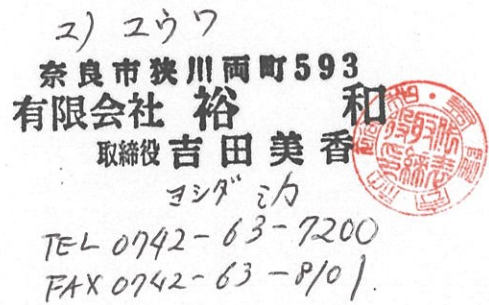 ユ) ユウワ
奈良市狭川両町593
有限会社 裕 和
取締役 吉田美香
ヨシダ ミカ
TEL 0742-63-7200
FAX 0742-63-8101.